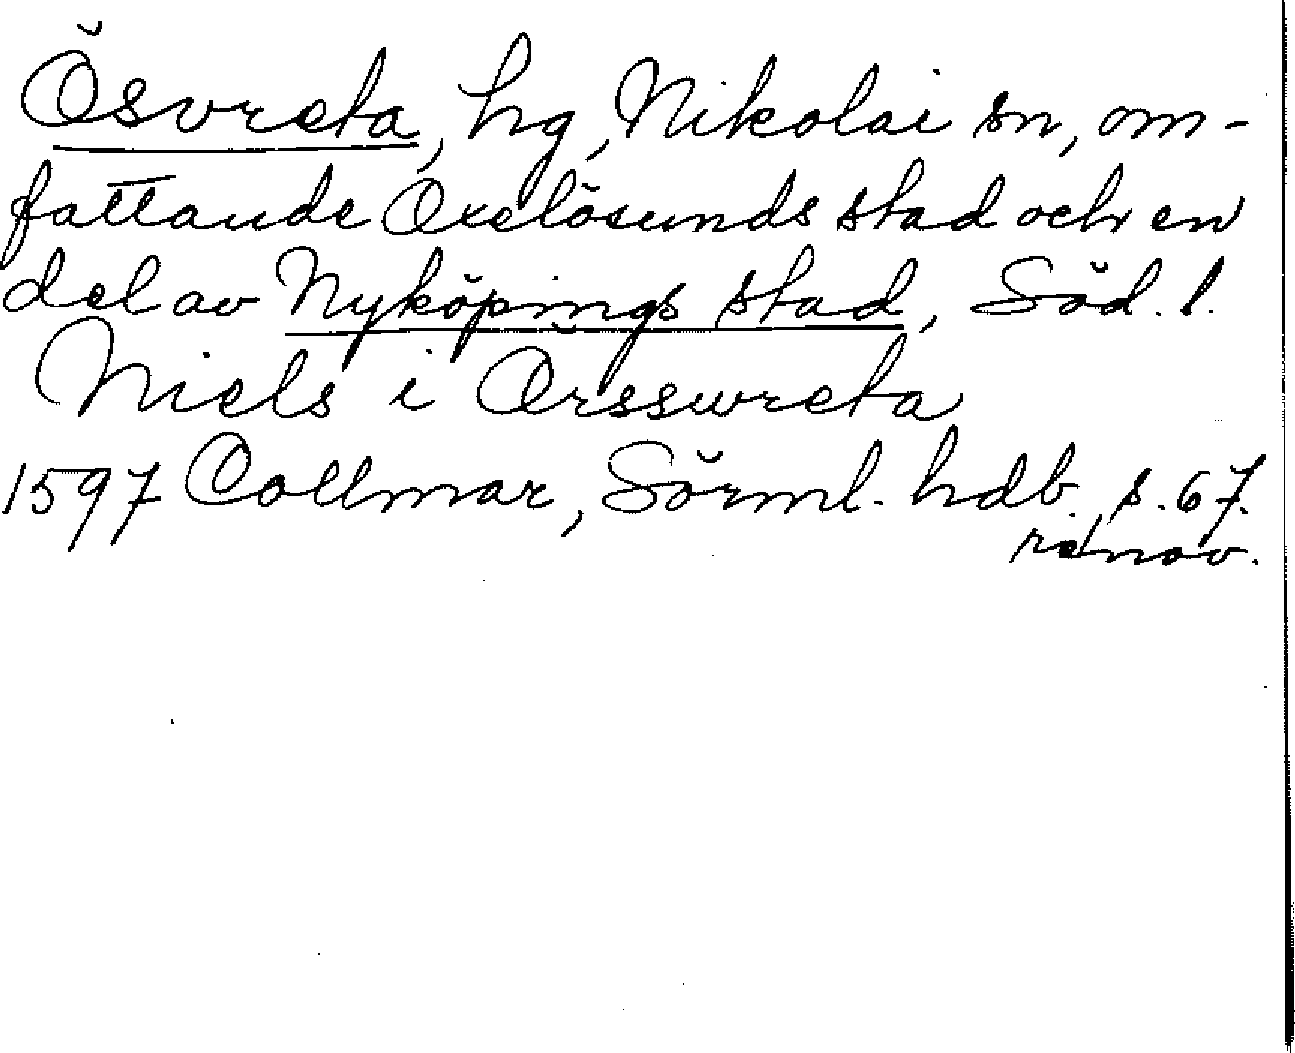 Ösvreta, hg, Nikolai sn, om-
fattande Oxelösunds stad och en
del av Nyköpings stad, Söd. l.
Niels i Örsswreta
1597 Collmar, Sörml. hdb., s. 67.
renov.